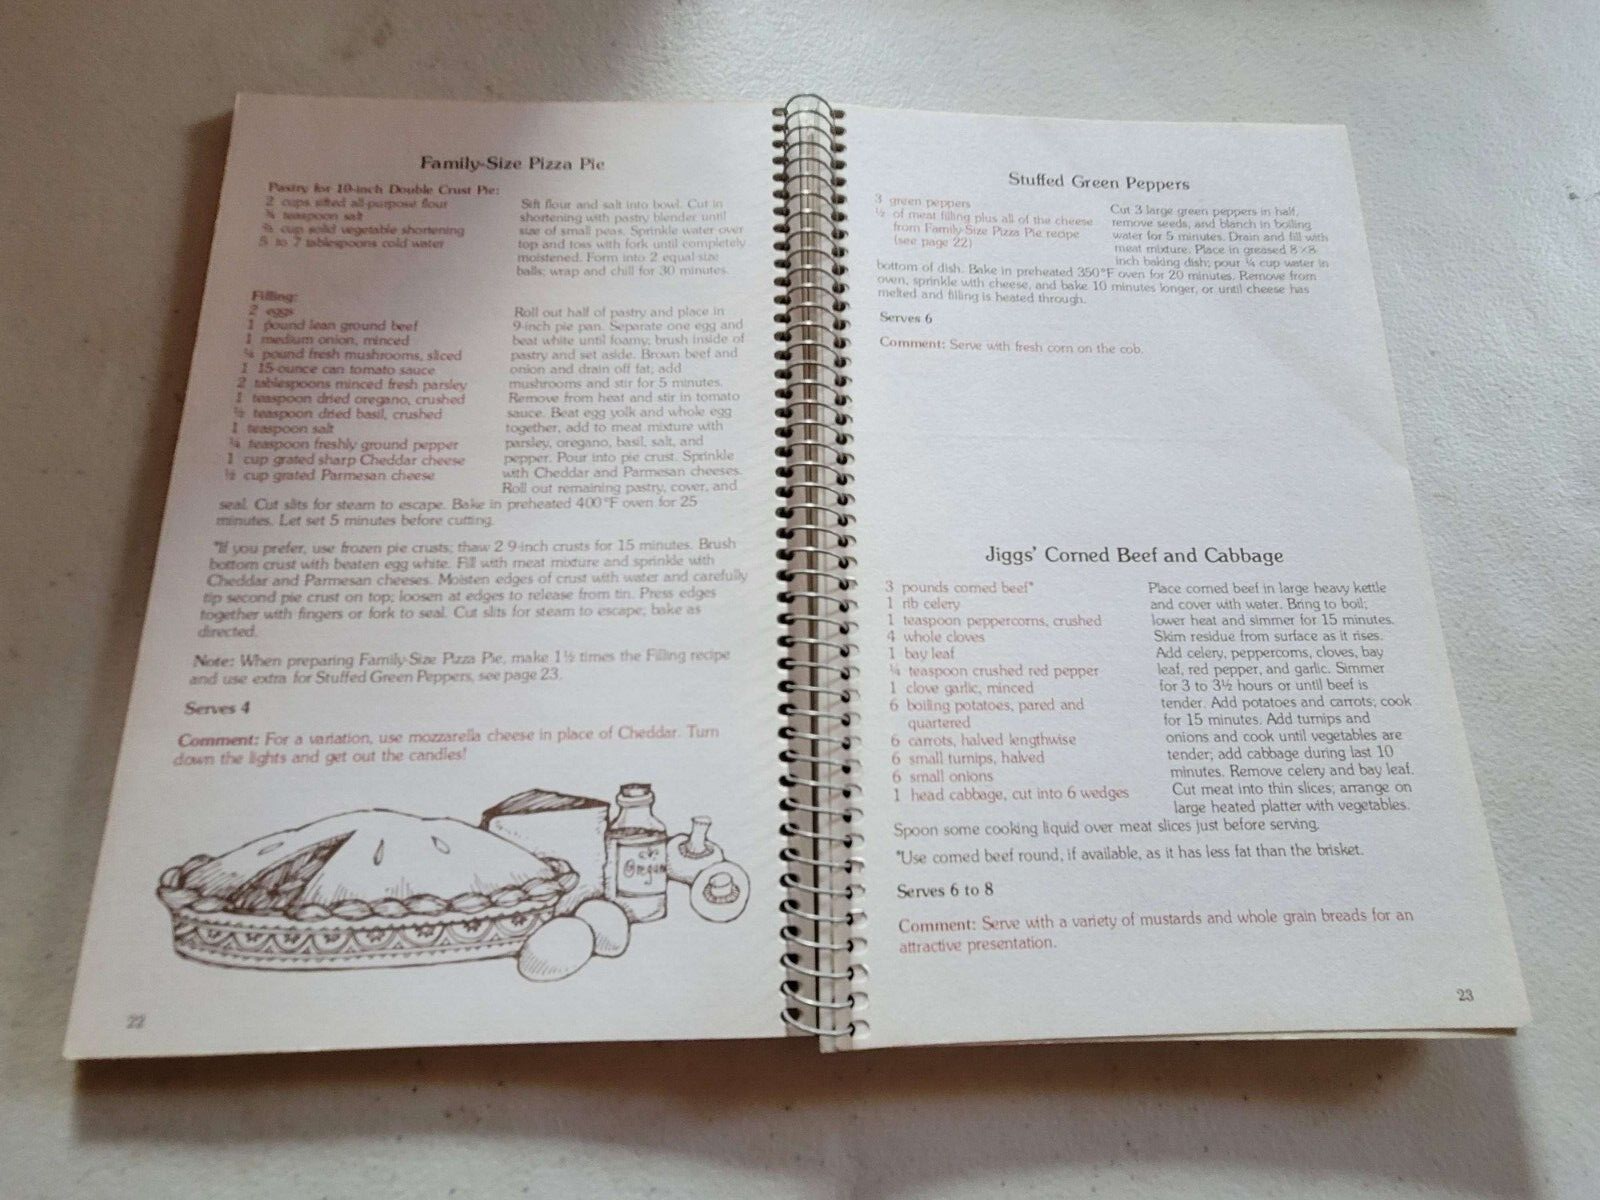 Family-Size Pizza Pie
Pastry for 10-inch Double Crust Pie:
2 cups sifted all-purpose flour
¾ teaspoon salt
⅔ cup solid vegetable shortening
5 to 7 tablespoons cold water
Sift flour and salt into bowl. Cut in
shortening with pastry blender until
size of small peas. Sprinkle water over
top and toss with fork until completely
moistened. Form into 2 equal size
balls; wrap and chill for 30 minutes.
Filling:
2 eggs
1 pound lean ground beef
1 medium onion, minced
¼ pound fresh mushrooms, sliced
1 15-ounce can tomato sauce
2 tablespoons minced fresh parsley
1 teaspoon dried oregano, crushed
½ teaspoon dried basil, crushed
1 teaspoon salt
¼ teaspoon freshly ground pepper
1 cup grated sharp Cheddar cheese
½ cup grated Parmesan cheese
Roll out half of pastry and place in
9-inch pie pan. Separate one egg and
beat white until foamy; brush inside of
pastry and set aside. Brown beef and
onion and drain off fat; add
mushrooms and stir for 5 minutes.
Remove from heat and stir in tomato
sauce. Beat egg yolk and whole egg
together, add to meat mixture with
parsley, oregano, basil, salt, and
pepper. Pour into pie crust. Sprinkle
with Cheddar and Parmesan cheeses.
Roll out remaining pastry, cover, and
seal. Cut slits for steam to escape. Bake in preheated 400°F oven for 25
minutes. Let set 5 minutes before cutting.
*If you prefer, use frozen pie crusts; thaw 2 9-inch crusts for 15 minutes. Brush
bottom crust with beaten egg white. Fill with meat mixture and sprinkle with
Cheddar and Parmesan cheeses. Moisten edges of crust with water and carefully
tip second pie crust on top; loosen at edges to release from tin. Press edges
together with fingers or fork to seal. Cut slits for steam to escape; bake as
directed.
Note: When preparing Family-Size Pizza Pie, make 1½ times the Filling recipe
and use extra for Stuffed Green Peppers, see page 23.
Serves 4
Comment: For a variation, use mozzarella cheese in place of Cheddar. Turn
down the lights and get out the candles!
Oregano
22
Stuffed Green Peppers
3 green peppers
½ of meat filling plus all of the cheese
from Family-Size Pizza Pie recipe
(see page 22)
Cut 3 large green peppers in half,
remove seeds, and blanch in boiling
water for 5 minutes. Drain and fill with
meat mixture. Place in greased 8×8-
inch baking dish; pour ¼ cup water in
bottom of dish. Bake in preheated 350°F oven for 20 minutes. Remove from
oven, sprinkle with cheese, and bake 10 minutes longer, or until cheese has
melted and filling is heated through.
Serves 6
Comment: Serve with fresh corn on the cob.
Jiggs' Corned Beef and Cabbage
3 pounds corned beef*
1 rib celery
1 teaspoon peppercorns, crushed
4 whole cloves
1 bay leaf
¼ teaspoon crushed red pepper
1 clove garlic, minced
6 boiling potatoes, pared and
quartered
6 carrots, halved lengthwise
6 small turnips, halved
6 small onions
1 head cabbage, cut into 6 wedges
Place corned beef in large heavy kettle
and cover with water. Bring to boil;
lower heat and simmer for 15 minutes.
Skim residue from surface as it rises.
Add celery, peppercorns, cloves, bay
leaf, red pepper, and garlic. Simmer
for 3 to 3½ hours or until beef is
tender. Add potatoes and carrots; cook
for 15 minutes. Add turnips and
onions and cook until vegetables are
tender; add cabbage during last 10
minutes. Remove celery and bay leaf.
Cut meat into thin slices; arrange on
large heated platter with vegetables.
Spoon some cooking liquid over meat slices just before serving.
*Use corned beef round, if available, as it has less fat than the brisket.
Serves 6 to 8
Comment: Serve with a variety of mustards and whole grain breads for an
attractive presentation.
23